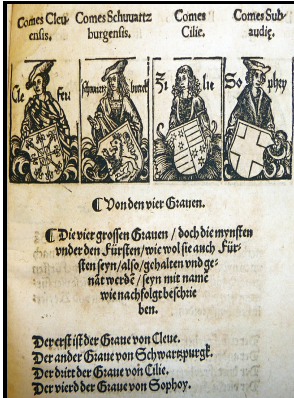 Comes Cleu
ensis.
Comes Schwartz
burgensis.
Comes
Cilie.
Comes Sub-
audię.
Cle fen
schwartz burck
Zi lie
So phey
¶ Von den vier Grauen.
¶ Die vier grossen Grauen / doch die mynsten
vnder den Fürsten / wie wol sie auch Für-
sten seyn / also / gehalten vnd ge-
nāt werdē / seyn mit name
wie nachfolgt beschrie
ben.
Der erst ist der Graue von Cleue.
Der ander Graue von Schwartzpurgk.
Der dritt der Graue von Cilie.
Der vierd der Graue von Sophoy.